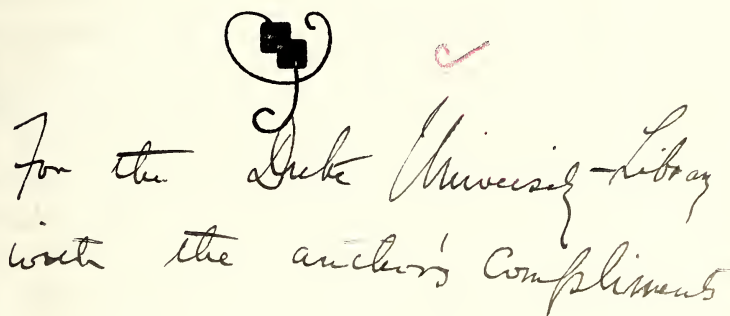 For the Duke University Library
with the author's Compliments